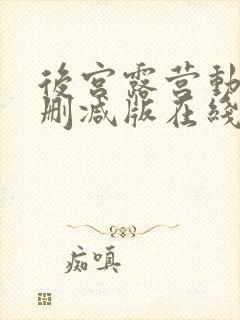 後宫露营動
删减版在綫
痴嗔